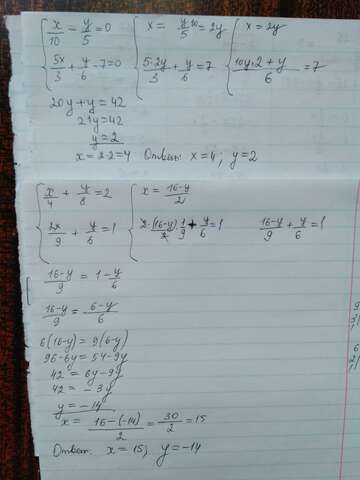 x/10 = y/5 = 0   x = y·10/5 = 2y   x = 2y
5x/3 + y/6 - 7 = 0   5·2y/3 + y/6 = 7   (10y·2 + y)/6 = 7
20y + y = 42
21y = 42
y = 2
x = 2·2 = 4   Ответ: x = 4; y = 2
x/4 + y/8 = 2   x = (16-y)/2
2x/9 + y/6 = 1   2·(16-y)/2 · 1/9 + y/6 = 1   (16-y)/9 + y/6 = 1
(16-y)/9 = 1 - y/6
(16-y)/9 = (6-y)/6
6(16-y) = 9(6-y)
96-6y = 54-9y
42 = 6y-9y
42 = -3y
y = -14
x = (16-(-14))/2 = 30/2 = 15
Ответ: x = 15; y = -14